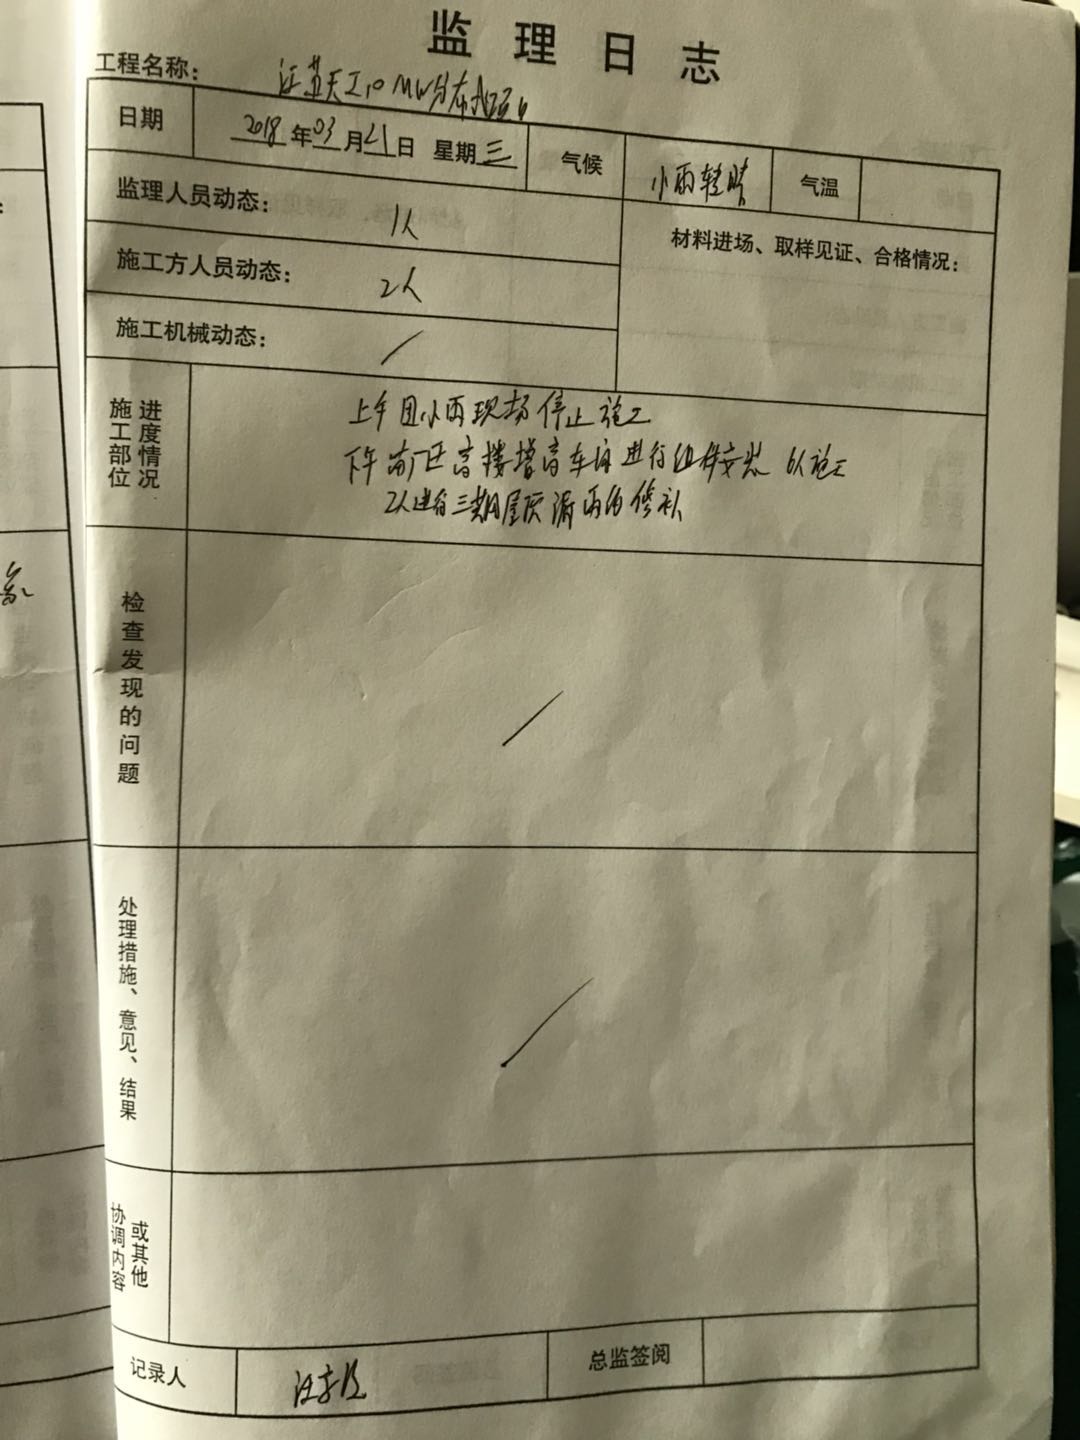 监理日志
工程名称： 江苏天工10MW分布式项目
日期 2018年03月21日 星期三 气候 小雨转晴 气温
监理人员动态： 1人
材料进场、取样见证、合格情况：
施工方人员动态： 2人
施工机械动态： /
施工部位进度情况
上午因小雨现场停止施工
下午南厂区高楼增高车间进行组件安装 6人施工
2人进行三期屋顶漏雨的修补
检查发现的问题 /
处理措施、意见、结果 /
协调内容或其他
记录人 汪 总监签阅